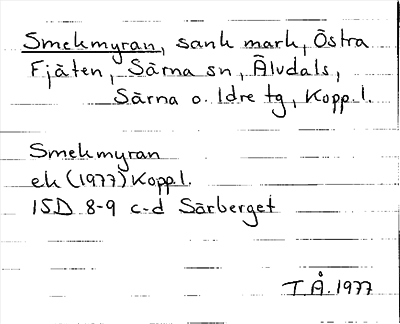 Smekmyran, sank mark, Östra
Fjäten, Särna sn, Älvdals,
Särna o. Idre tg, Kopp.l.
Smekmyran
ek (1977) Kopp.l.
15D 8-9 c-d Särberget
T Å. 1977